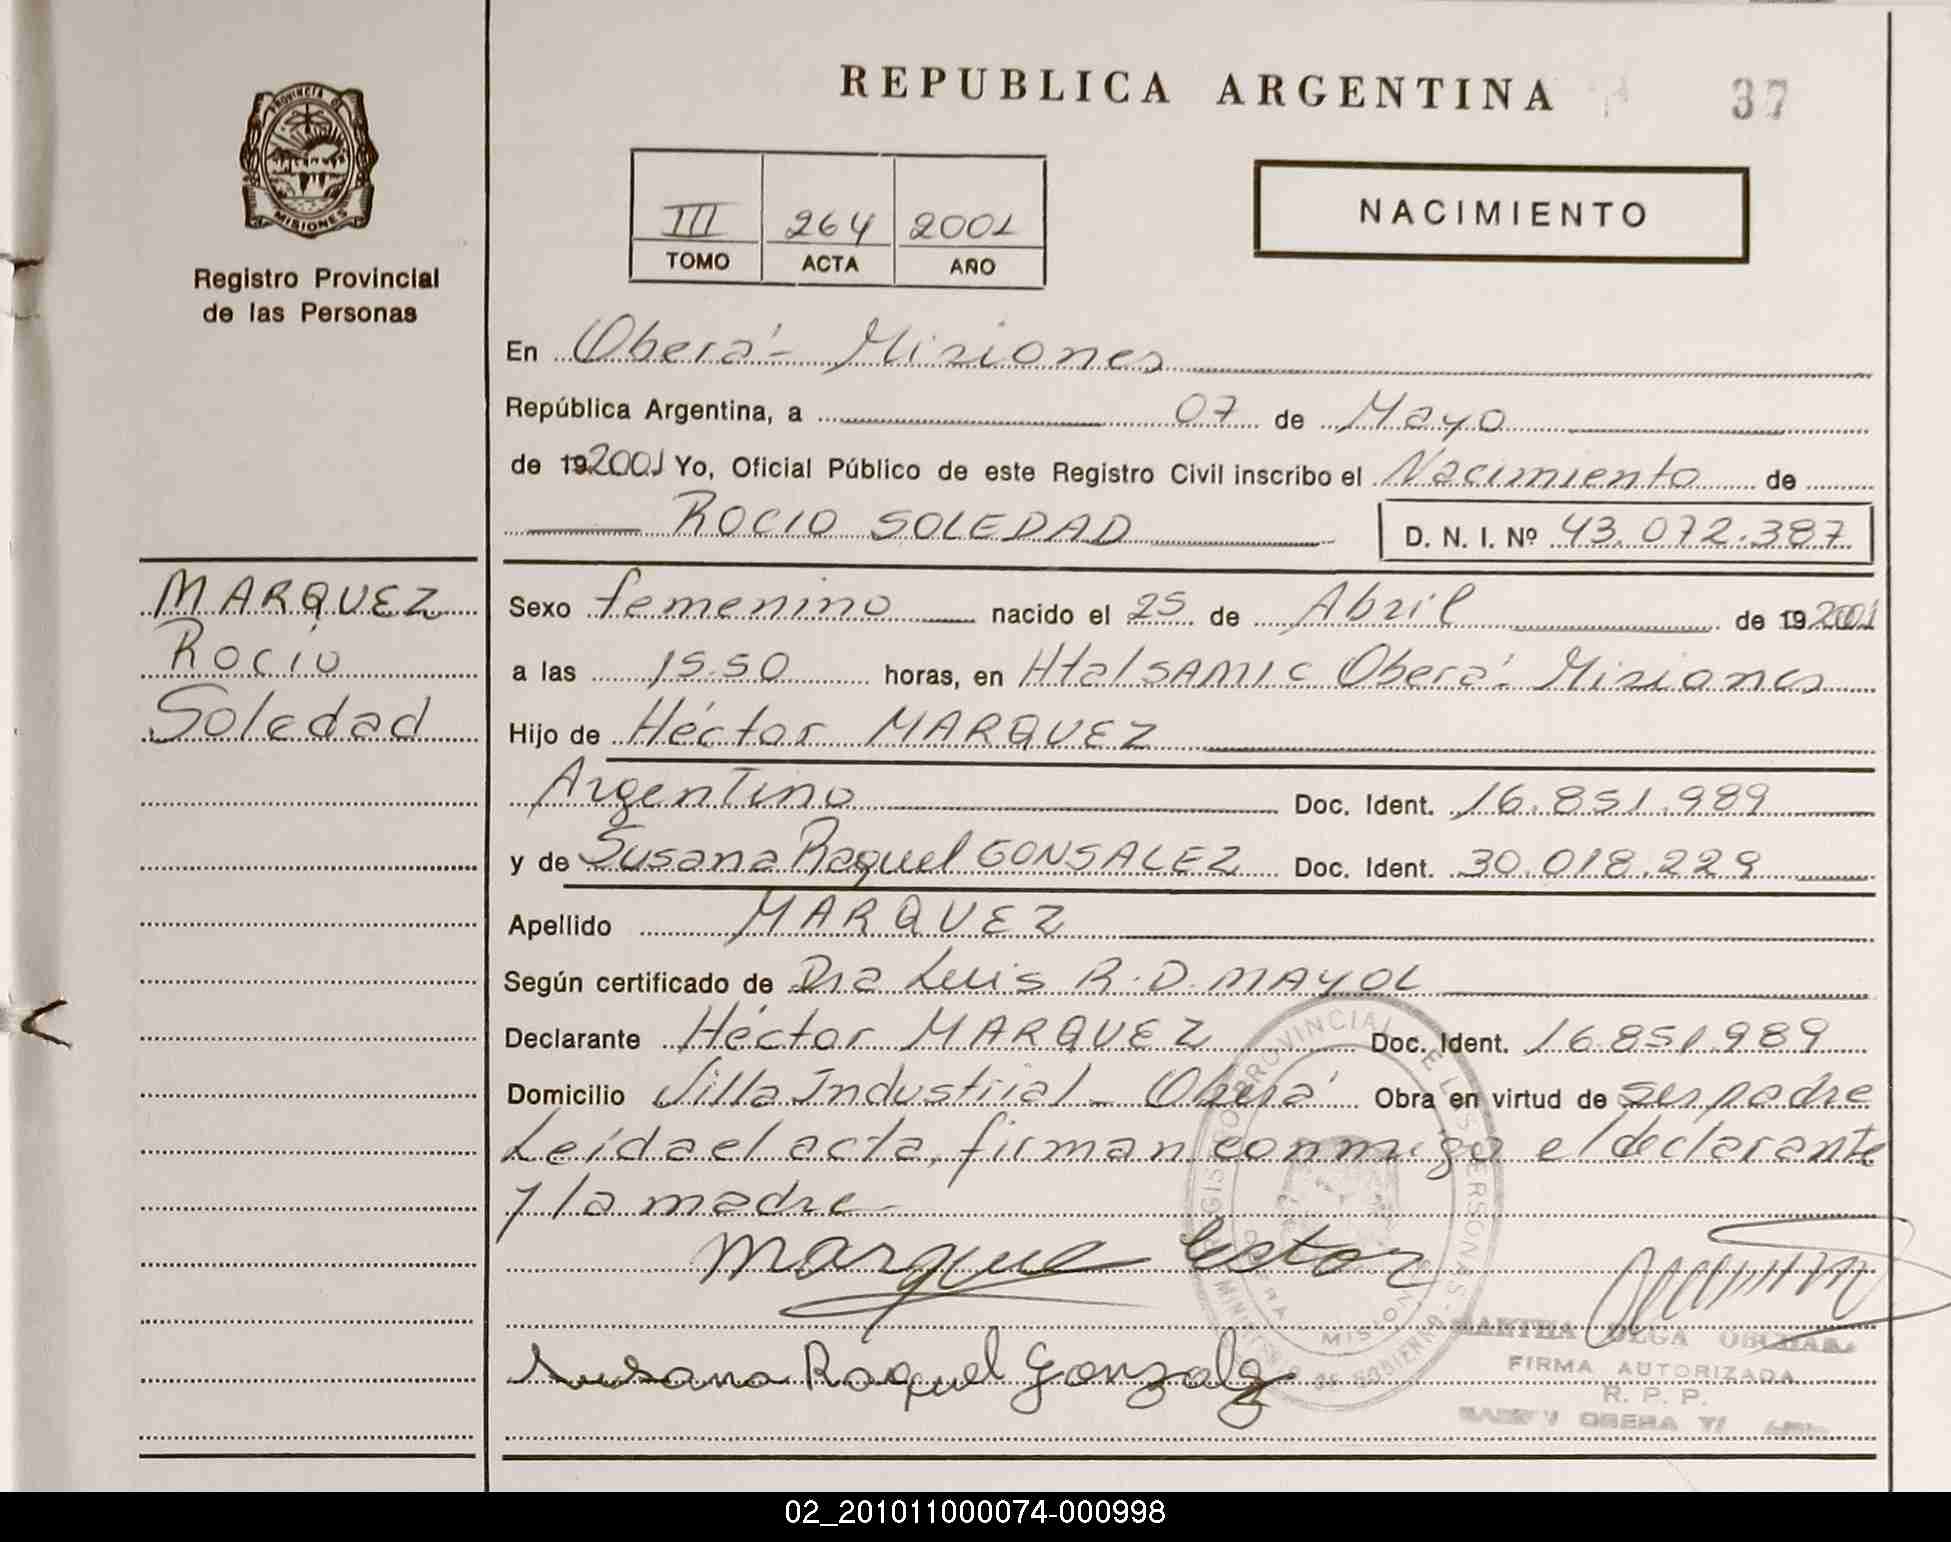 REPUBLICA ARGENTINA
37
PROVINCIA DE
MISIONES
Registro Provincial
de las Personas
III 264 2001
TOMO ACTA AÑO
NACIMIENTO
En Oberá - Misiones
República Argentina, a 07 de Mayo
de 19 2001 Yo, Oficial Público de este Registro Civil inscribo el Nacimiento de
ROCIO SOLEDAD D. N. I. Nº 43.072.387
MARQUEZ
Rocio
Soledad
Sexo femenino nacido el 25 de Abril de 19 2001
a las 15.50 horas, en Htal SAMIC Oberá. Misiones
Hijo de Héctor MARQUEZ
Argentino Doc. Ident. 16.851.989
y de Susana Raquel GONSALEZ Doc. Ident. 30.018.229
Apellido MARQUEZ
Según certificado de Dra Luis R. D. MAYOL
Declarante Héctor MARQUEZ Doc. Ident. 16.851.989
Domicilio Villa Industrial - Oberá Obra en virtud de ser padre
Leída el acta, firman conmigo el declarante
y la madre
REGISTRO PROVINCIAL DE LAS PERSONAS
OBERA MISIONES
MINISTERIO DE GOBIERNO
Marque Estor
Susana Raquel Gonzalez
MARTHA OLGA
FIRMA AUTORIZADA
R. P. P.
OBERA
02_201011000074-000998